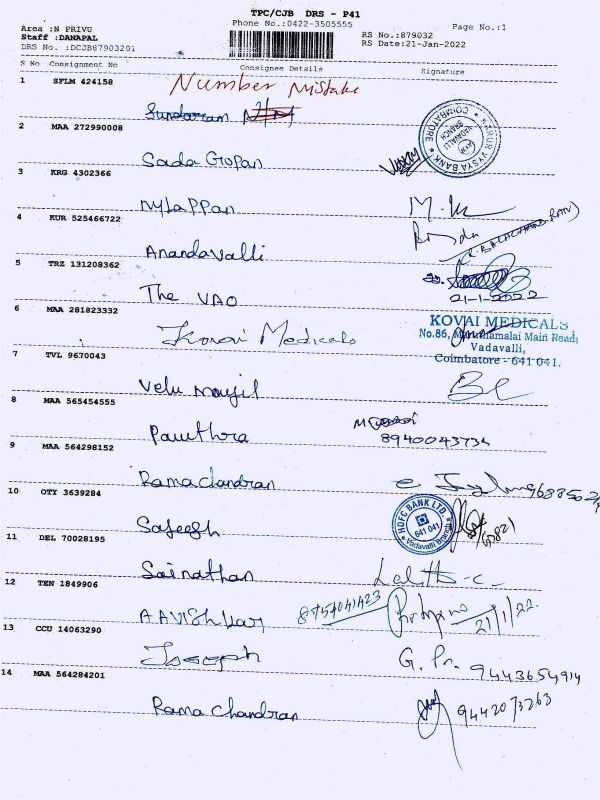 TPC/CJB DRS - P41
Phone No.:0422-3505555
Page No.:1
Area :N PRIVU
Staff :DANAPAL
DRS No. :DCJB87903201
RS No:879032
RS Date:21-Jan-2022
S No Consignment No Consignee Details Signature
1 SFLM 424158 Number Mistake
Sundaram
2 MAA 272990008
Sada Gopan
KARUR VYSYA BANK COIMBATORE VADAVALLI BRANCH
3 KRG 4302366
Mylappan
4 KUR 525466722
Anandavalli
5 TRZ 131208362
The VAO
21-1-2022
6 MAA 281823332
Kovai Medicals
KOVAI MEDICALS
No.86, Marudhamalai Main Road,
Vadavalli,
Coimbatore - 641 041.
7 TVL 9670043
Velu
8 MAA 565454555
Pavithra
8940043734
9 MAA 564298152
Rama chandran
10 OTY 3639284
Sajeesh
HDFC BANK LTD. 641 041 Vadavalli Branch
11 DEL 70028195
Sainathan
Lalitha
12 TEN 1849906
AAVISHkar
8754041423
21/1/22.
13 CCU 14063290
Joseph
G. Pr. 9443654914
14 MAA 564284201
Rama Chandran
9442073263